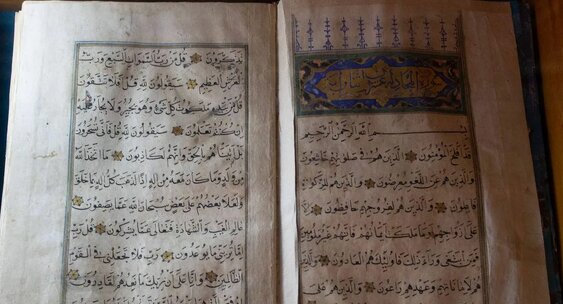 بِسْمِ اللَّهِ الرَّحْمَنِ الرَّحِيمِ
قَدْ أَفْلَحَ الْمُؤْمِنُونَ الَّذِينَ هُمْ فِي صَلَوتِهِمْ خَاشِعُونَ
وَالَّذِينَ هُمْ عَنِ اللَّغْوِ مُعْرِضُونَ وَالَّذِينَ هُمْ لِلزَّكَوةِ
فَاعِلُونَ وَالَّذِينَ هُمْ لِفُرُوجِهِمْ حَافِظُونَ
عَلَى أَزْوَاجِهِمْ أَوْ مَا مَلَكَتْ أَيْمَانُهُمْ فَإِنَّهُمْ غَيْرُ مَلُومِينَ
فَمَنِ ابْتَغَى وَرَاءَ ذَلِكَ فَأُولَئِكَ هُمُ الْعَادُونَ وَالَّذِينَ
هُمْ لِأَمَانَاتِهِمْ وَعَهْدِهِمْ رَاعُونَ وَالَّذِينَ هُمْ عَلَى
تَذَكَّرُونَ قُلْ مَنْ رَبُّ السَّمَوَاتِ السَّبْعِ وَرَبُّ
الْعَرْشِ الْعَظِيمِ سَيَقُولُونَ لِلَّهِ قُلْ أَفَلَا تَتَّقُونَ
قُلْ مَنْ بِيَدِهِ مَلَكُوتُ كُلِّ شَيْءٍ وَهُوَ يُجِيرُ وَلَا يُجَارُ عَلَيْهِ
إِنْ كُنْتُمْ تَعْلَمُونَ سَيَقُولُونَ لِلَّهِ قُلْ فَأَنَّى تُسْحَرُونَ
بَلْ أَتَيْنَاهُمْ بِالْحَقِّ وَإِنَّهُمْ لَكَاذِبُونَ مَا اتَّخَذَ اللَّهُ
مِنْ وَلَدٍ وَمَا كَانَ مَعَهُ مِنْ إِلَهٍ إِذًا لَذَهَبَ كُلُّ إِلَهٍ بِمَا خَلَقَ
وَلَعَلَا بَعْضُهُمْ عَلَى بَعْضٍ سُبْحَانَ اللَّهِ عَمَّا يَصِفُونَ
عَالِمِ الْغَيْبِ وَالشَّهَادَةِ فَتَعَالَى عَمَّا يُشْرِكُونَ قُلْ رَبِّ
إِمَّا تُرِيَنِّي مَا يُوعَدُونَ رَبِّ فَلَا تَجْعَلْنِي فِي الْقَوْمِ
الظَّالِمِينَ وَإِنَّا عَلَى أَنْ نُرِيَكَ مَا نَعِدُهُمْ لَقَادِرُونَ